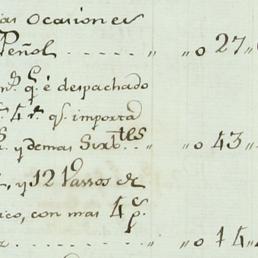 ias ocasiones
Peñol ....... " " o 27 "
q.e é despachado
4 r.s q.e importa
y demas Sirb.tes .. " " o 43 "
y 12 Vassos de
ico, con mas 4 p.s
.......... " " o 14 "